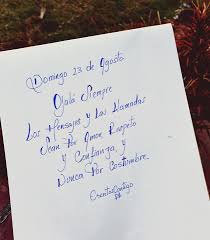 Domingo 23 de Agosto
Ojalá Siempre
Los Mensajes y Las Llamadas
Sean Por Amor, Respeto
y Confianza, y
Nunca Por Costumbre.